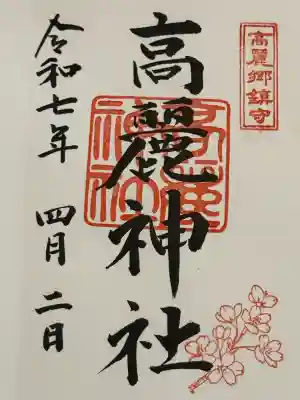 高麗郷鎮守
高麗神社
令和七年 四月 二日
高麗神社